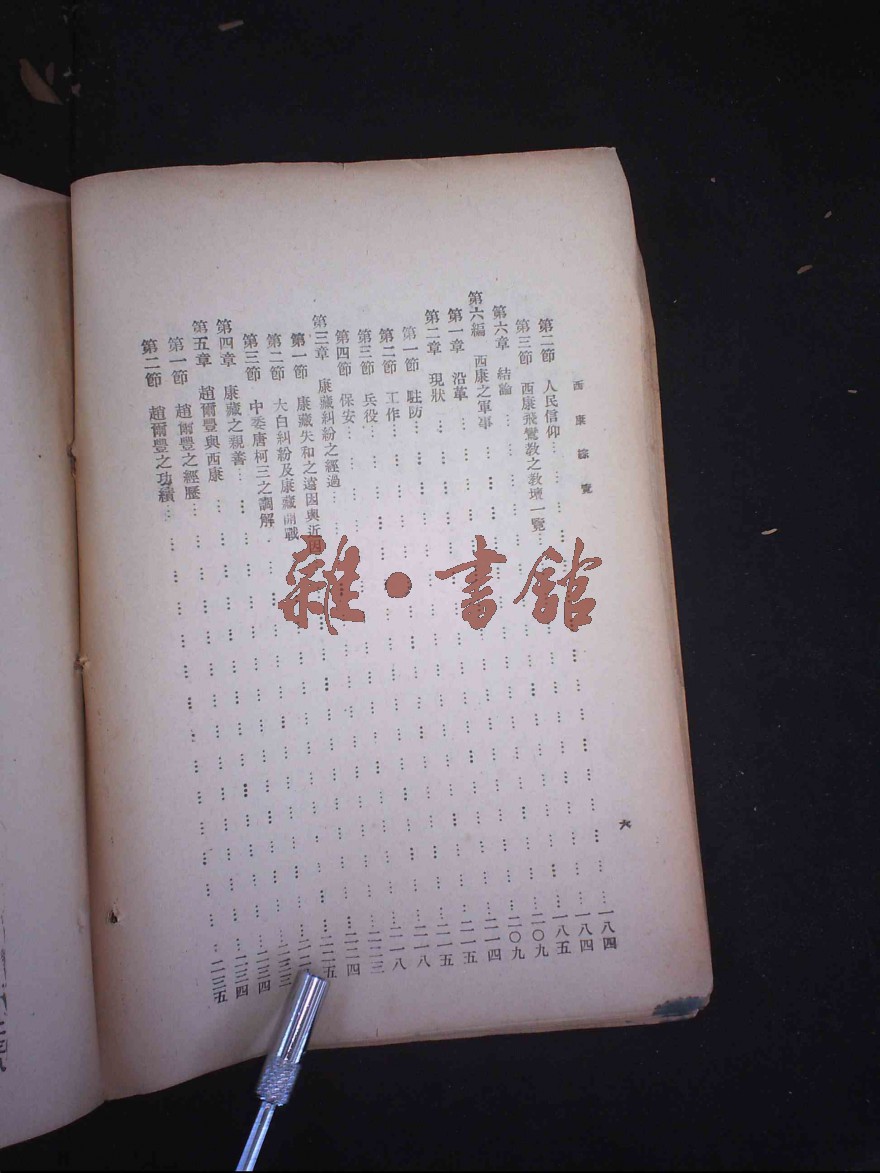 西康綜覽
六
第二節 人民信仰……一八四
第三節 西康飛鸞教之教壇一覽……一八四
第六章 結論……一八五
第六編 西康之軍事……二〇九
第一章 沿革……二〇九
第二章 現狀……二一四
第一節 駐防……二一五
第二節 工作……二一五
第三節 兵役……二一八
第四節 保安……二一八
第三章 康藏糾紛之經過……二二三
第一節 康藏失和之遠因與近因……二二四
第二節 大白糾紛及康藏開戰……二二五
第三節 中委唐柯三之調解……
第四章 康藏之親善……二三三
第五章 趙爾豐與西康……二三四
第一節 趙爾豐之經歷……二三四
第二節 趙爾豐之功績……二三五
雜·書館